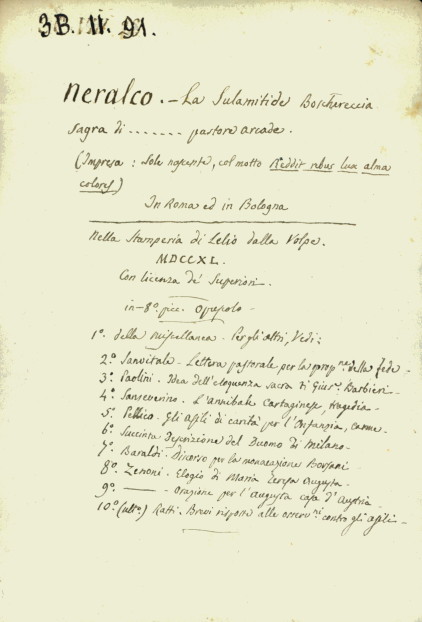 3B. II. 91.
Neralco. – La Sulamitide Boschereccia
sagra di ....... pastore arcade.
(Impresa : Sole nascente, col motto Reddit rebus lux alma
colores)
In Roma ed in Bologna
Nella Stamperia di Lelio dalla Volpe.
MDCCXL.
Con licenza de' Superiori.
in-8º. picc. Opuscolo -
1º. della Miscellanea. Per gli altri, Vedi:
2º. Sanvitale. Lettera pastorale per la propne. della fede -
3º. Paolini. Idea dell'eloquenza sacra di Gius. Barbieri -
4º. Sanseverino. L'annibale Cartaginese, tragedia -
5º. Pellico. Gli asili di carità per l'Infanzia, carme -
6º. Succinta Descrizione del Duomo di Milano -
7º. Baraldi. Discorso per la monacazione Bersani
8º. Zenoni. Elogio di Maria Teresa Augusta -
9º. ——— . Orazione per l'Augusta casa d'Austria -
10º. (ulto.) Ratti. Brevi risposte alle osservni. contro gli asili -